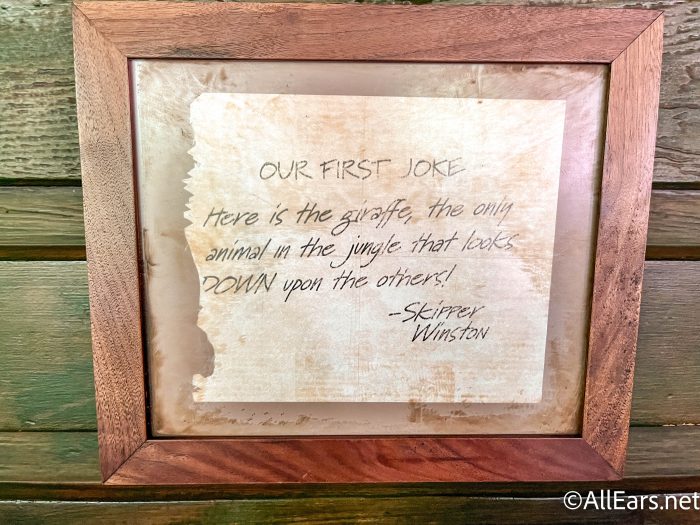 OUR FIRST JOKE
Here is the giraffe, the only
animal in the jungle that looks
DOWN upon the others!
-Skipper
Winston
©AllEars.net